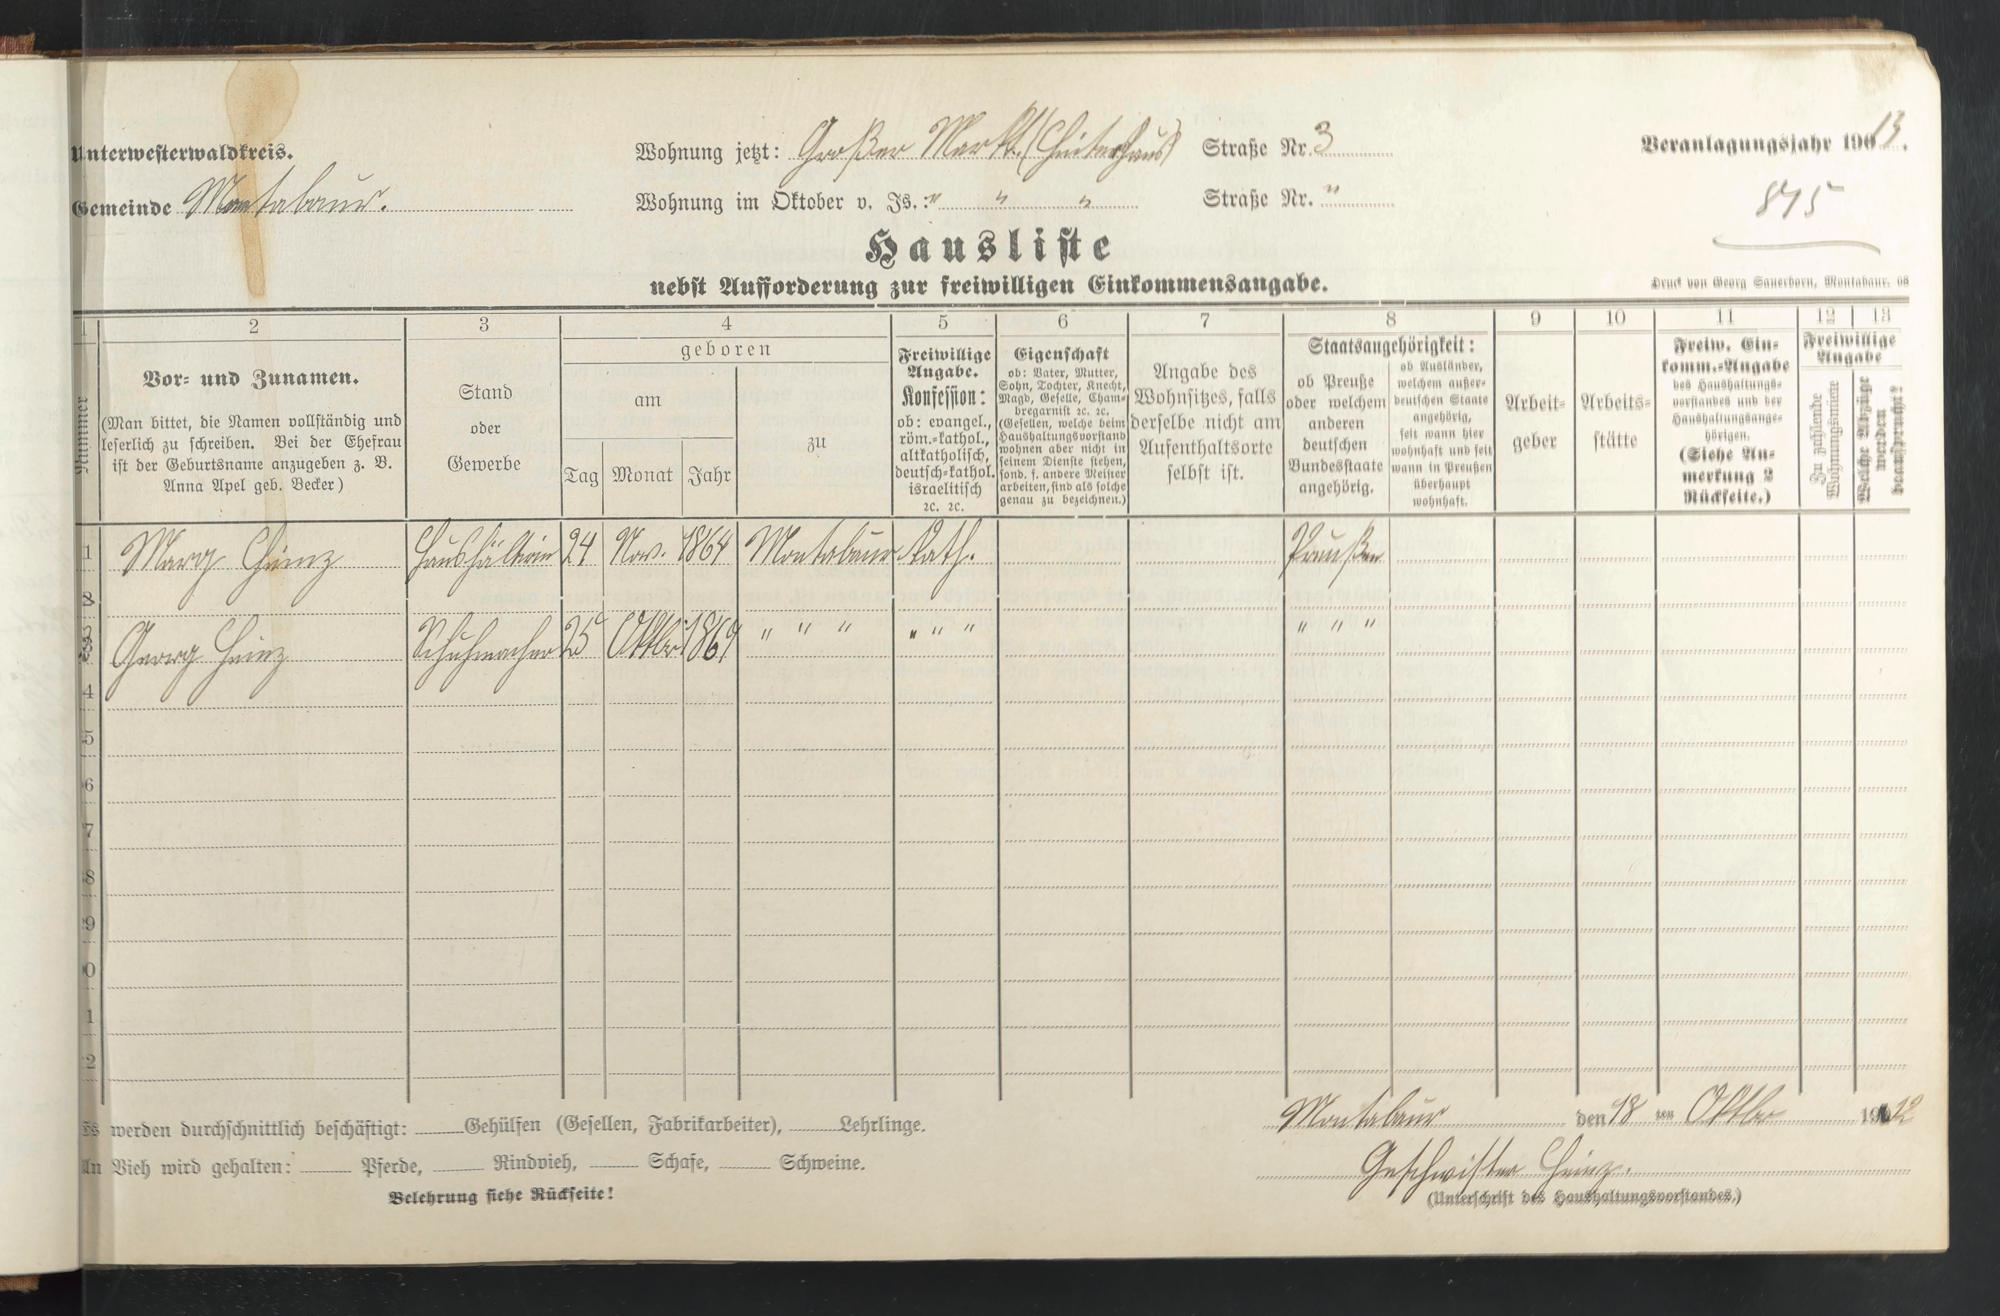 Unterwesterwaldkreis.
Gemeinde Montabaur.
Wohnung jetzt: Großer Markt (Hinterhaus) Straße Nr. 3
Wohnung im Oktober v. Js.: " " " Straße Nr. "
Veranlagungsjahr 1913.
875
Hausliste
nebst Aufforderung zur freiwilligen Einkommensangabe.
Druck von Georg Sauerborn, Montabaur. 08
1 2 3 4 5 6 7 8 9 10 11 12 13
Nummer
Vor- und Zunamen.
(Man bittet, die Namen vollständig und
leserlich zu schreiben. Bei der Ehefrau
ist der Geburtsname anzugeben z. B.
Anna Apel geb. Becker)
Stand
oder
Gewerbe
geboren
am
Tag Monat Jahr
zu
Freiwillige
Angabe.
Konfession:
ob: evangel.,
röm.-kathol.,
altkatholisch,
deutsch-kathol.
israelitisch
ꝛc. ꝛc.
Eigenschaft
ob: Vater, Mutter,
Sohn, Tochter, Knecht,
Magd, Geselle, Cham-
bregarnist ꝛc. ꝛc.
(Gesellen, welche beim
Haushaltungsvorstand
wohnen aber nicht in
seinem Dienste stehen,
sond. f. andere Meister
arbeiten, sind als solche
genau zu bezeichnen.)
Angabe des
Wohnsitzes, falls
derselbe nicht am
Aufenthaltsorte
selbst ist.
Staatsangehörigkeit:
ob Preuße
oder welchem
anderen
deutschen
Bundesstaate
angehörig.
ob Ausländer,
welchem außer-
deutschen Staate
angehörig,
seit wann hier
wohnhaft und seit
wann in Preußen
überhaupt
wohnhaft.
Arbeit-
geber
Arbeits-
stätte
Freiw. Ein-
komm.-Angabe
des Haushaltungs-
vorstandes und der
Haushaltungsange-
hörigen.
(Siehe An-
merkung 2
Rückseite.)
Freiwillige
Angabe
Zu zahlende
Wohnungsmiete
Welche Abzüge
werden
beansprucht?
1 Marg Heinz Haushälterin 24 Nov. 1864 Montabaur Kath. Preußen
2
3 Georg Heinz Schuhmacher 25 Oktbr 1869 " " " " " " " " "
4
5
6
7
8
9
0
1
2
Es werden durchschnittlich beschäftigt: Gehülfen (Gesellen, Fabrikarbeiter), Lehrlinge.
An Vieh wird gehalten: Pferde, Rindvieh, Schafe, Schweine.
Belehrung siehe Rückseite!
Montabaur den 18 ten Oktbr 1912
Geschwister Heinz.
(Unterschrift des Haushaltungsvorstandes.)